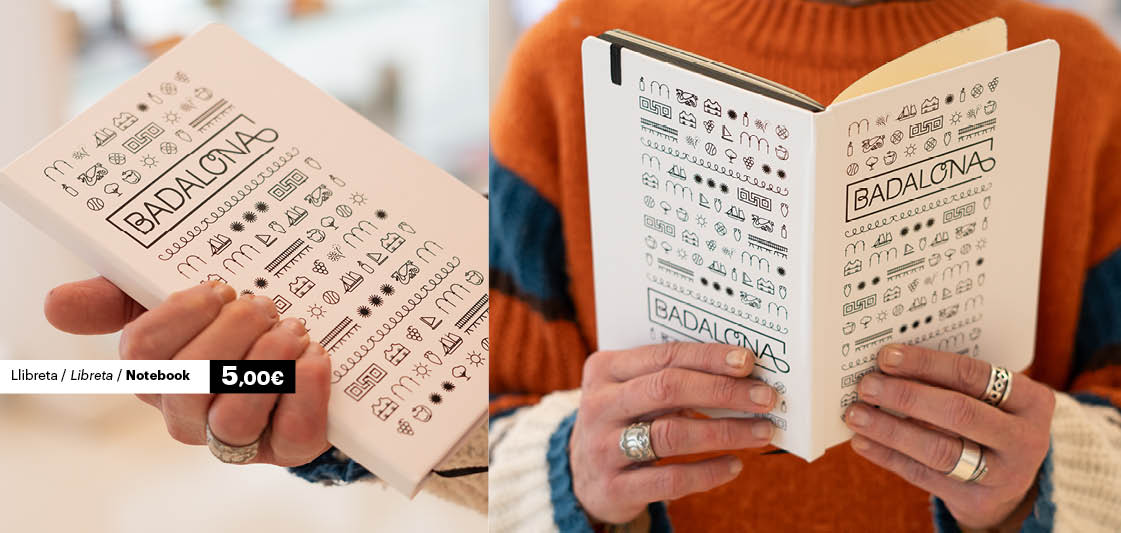 BADALONA
Llibreta / Libreta / Notebook 5,00€
BADALONA
BADALONA